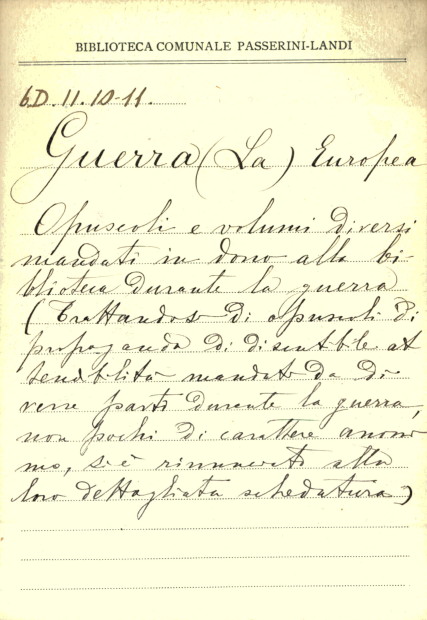 BIBLIOTECA COMUNALE PASSERINI-LANDI
6.D.11.10-11.
Guerra (La) Europea
Opuscoli e volumi diversi
mandati in dono alla bi-
blioteca durante la guerra
(Trattandosi di opuscoli di
propaganda di discutibile at
tendibilità mandati da di
verse parti durante la guerra,
non pochi di carattere anoni
mo, si è rinunciato alla
loro dettagliata schedatura)